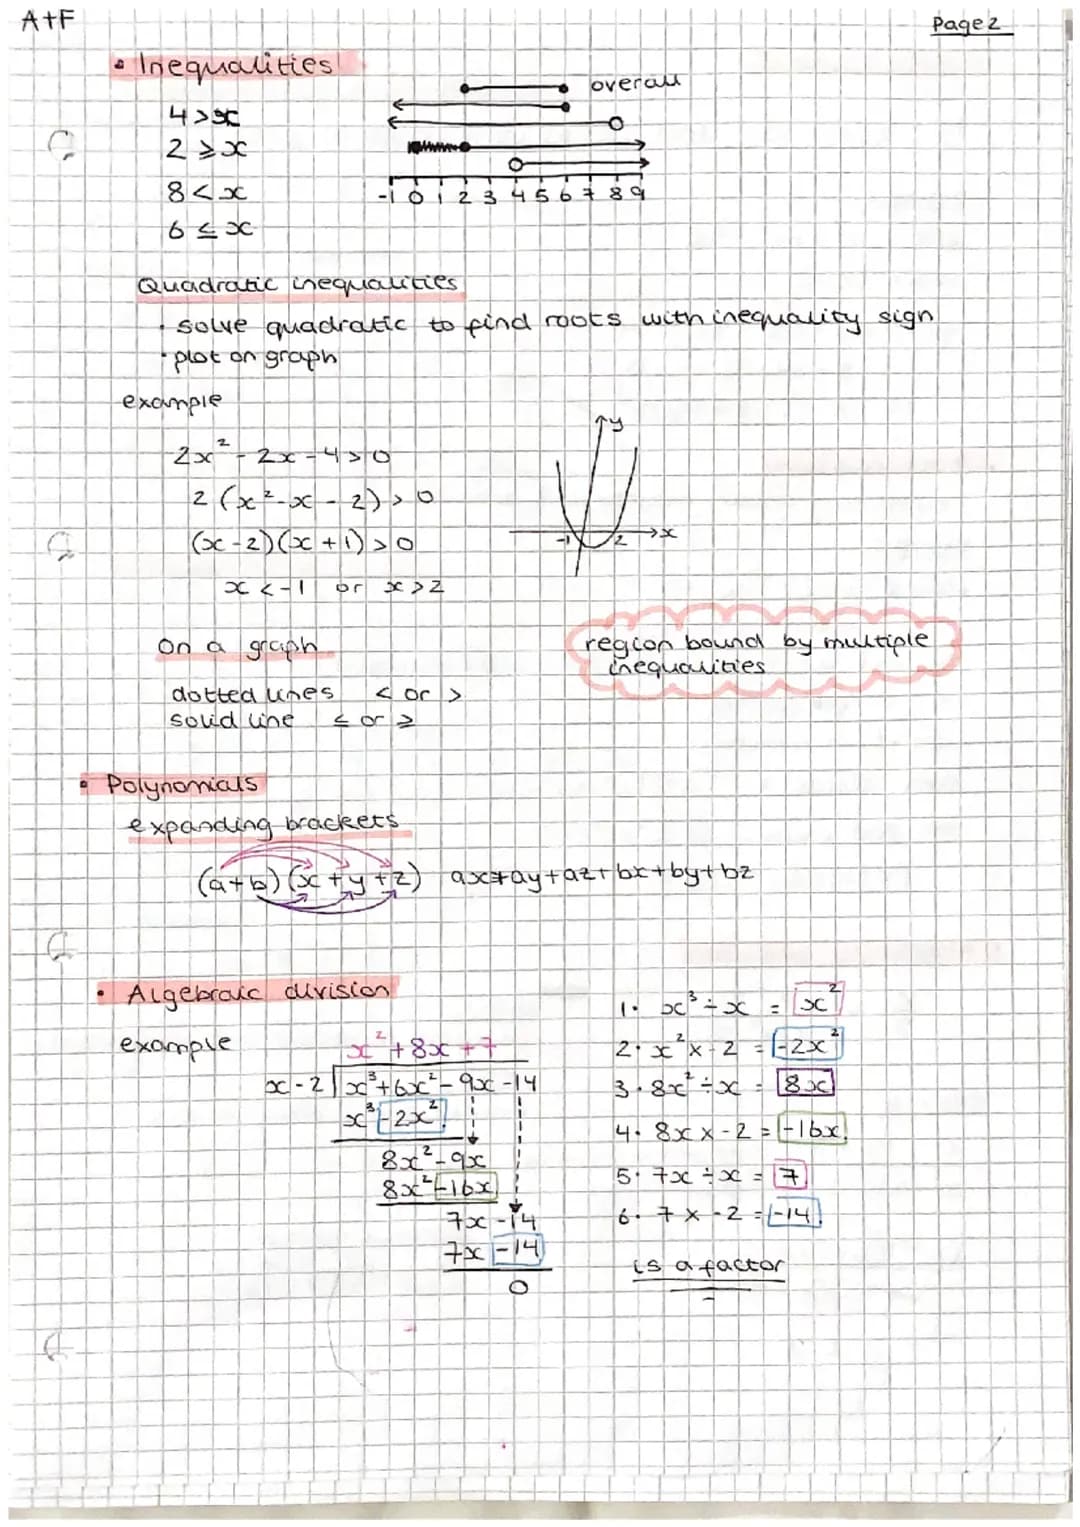 A+F
Page 2
• Inequalities
overall
4 > x
2 ⩾ x
8 < x
6 ≤ x
-1 0 1 2 3 4 5 6 7 8 9
Quadratic inequalities
• solve quadratic to find roots with inequality sign
• plot on graph
example
y
2x² - 2x - 4 > 0
2 (x² - x - 2) > 0
(x - 2)(x + 1) > 0
-1 2 x
x < -1 or x > 2
On a graph
region bound by multiple
inequalities
dotted lines < or >
solid line ≤ or ⩾
• Polynomials
expanding brackets
(a+b) (x + y + z) ax+ay+az+bx+by+bz
• Algebraic division
example
x² + 8x + 7
x - 2 x³ + 6x² - 9x - 14
x³ - 2x²
8x² - 9x
8x² - 16x
7x - 14
7x - 14
0
1. x³ ÷ x = x²
2. x² x - 2 = -2x²
3. 8x² ÷ x = 8x
4. 8x x - 2 = -16x
5. 7x ÷ x = 7
6. 7 x - 2 = -14
is a factor